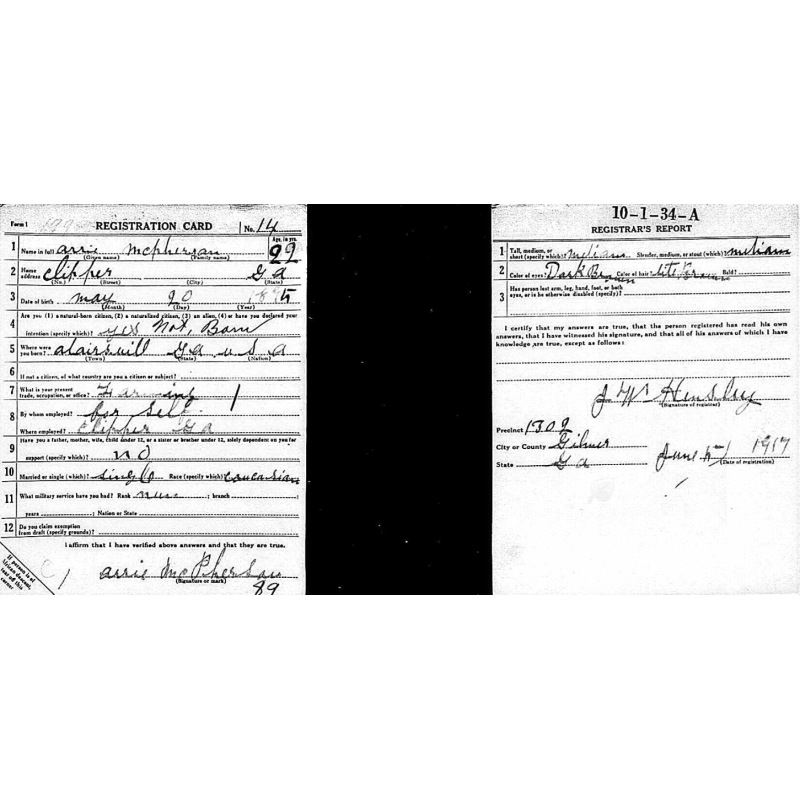 Form 1 REGISTRATION CARD No. 14
Age, in yrs.
1 Name in full arrie mcphersan 22
(Given name) (Family name)
2 Home address Clipper Ga
(No.) (Street) (City) (State)
3 Date of birth may 20 1895
(Month) (Day) (Year)
4 Are you (1) a natural-born citizen, (2) a naturalized citizen, (3) an alien, (4) or have you declared your
intention (specify which)? yes Nat, Born
5 Where were you born? adairsvill Ga U S A
(Town) (State) (Nation)
6 If not a citizen, of what country are you a citizen or subject?
7 What is your present trade, occupation, or office? Farming 1
8 By whom employed? for Self
Where employed? Clipper Ga
9 Have you a father, mother, wife, child under 12, or a sister or brother under 12, solely dependent on you for
support (specify which)? no
10 Married or single (which)? single Race (specify which)? caucasian
11 What military service have you had? Rank nun ; branch ;
years ; Nation or State
12 Do you claim exemption from draft (specify grounds)?
I affirm that I have verified above answers and that they are true.
arrie McPherson
(Signature or mark)
If person is of African descent, tear off this corner
89
10-1-34-A
REGISTRAR'S REPORT
1 Tall, medium, or short (specify which)? medium Slender, medium, or stout (which)? medium
2 Color of eyes? Dark Brown Color of hair? lite Brown Bald?
3 Has person lost arm, leg, hand, foot, or both eyes, or is he otherwise disabled (specify)?
I certify that my answers are true, that the person registered has read his own
answers, that I have witnessed his signature, and that all of his answers of which I
have knowledge are true, except as follows:
J W Hensley
(Signature of registrar)
Precinct 1302
City or County Gilmer
State Ga June 5 1917
(Date of registration)